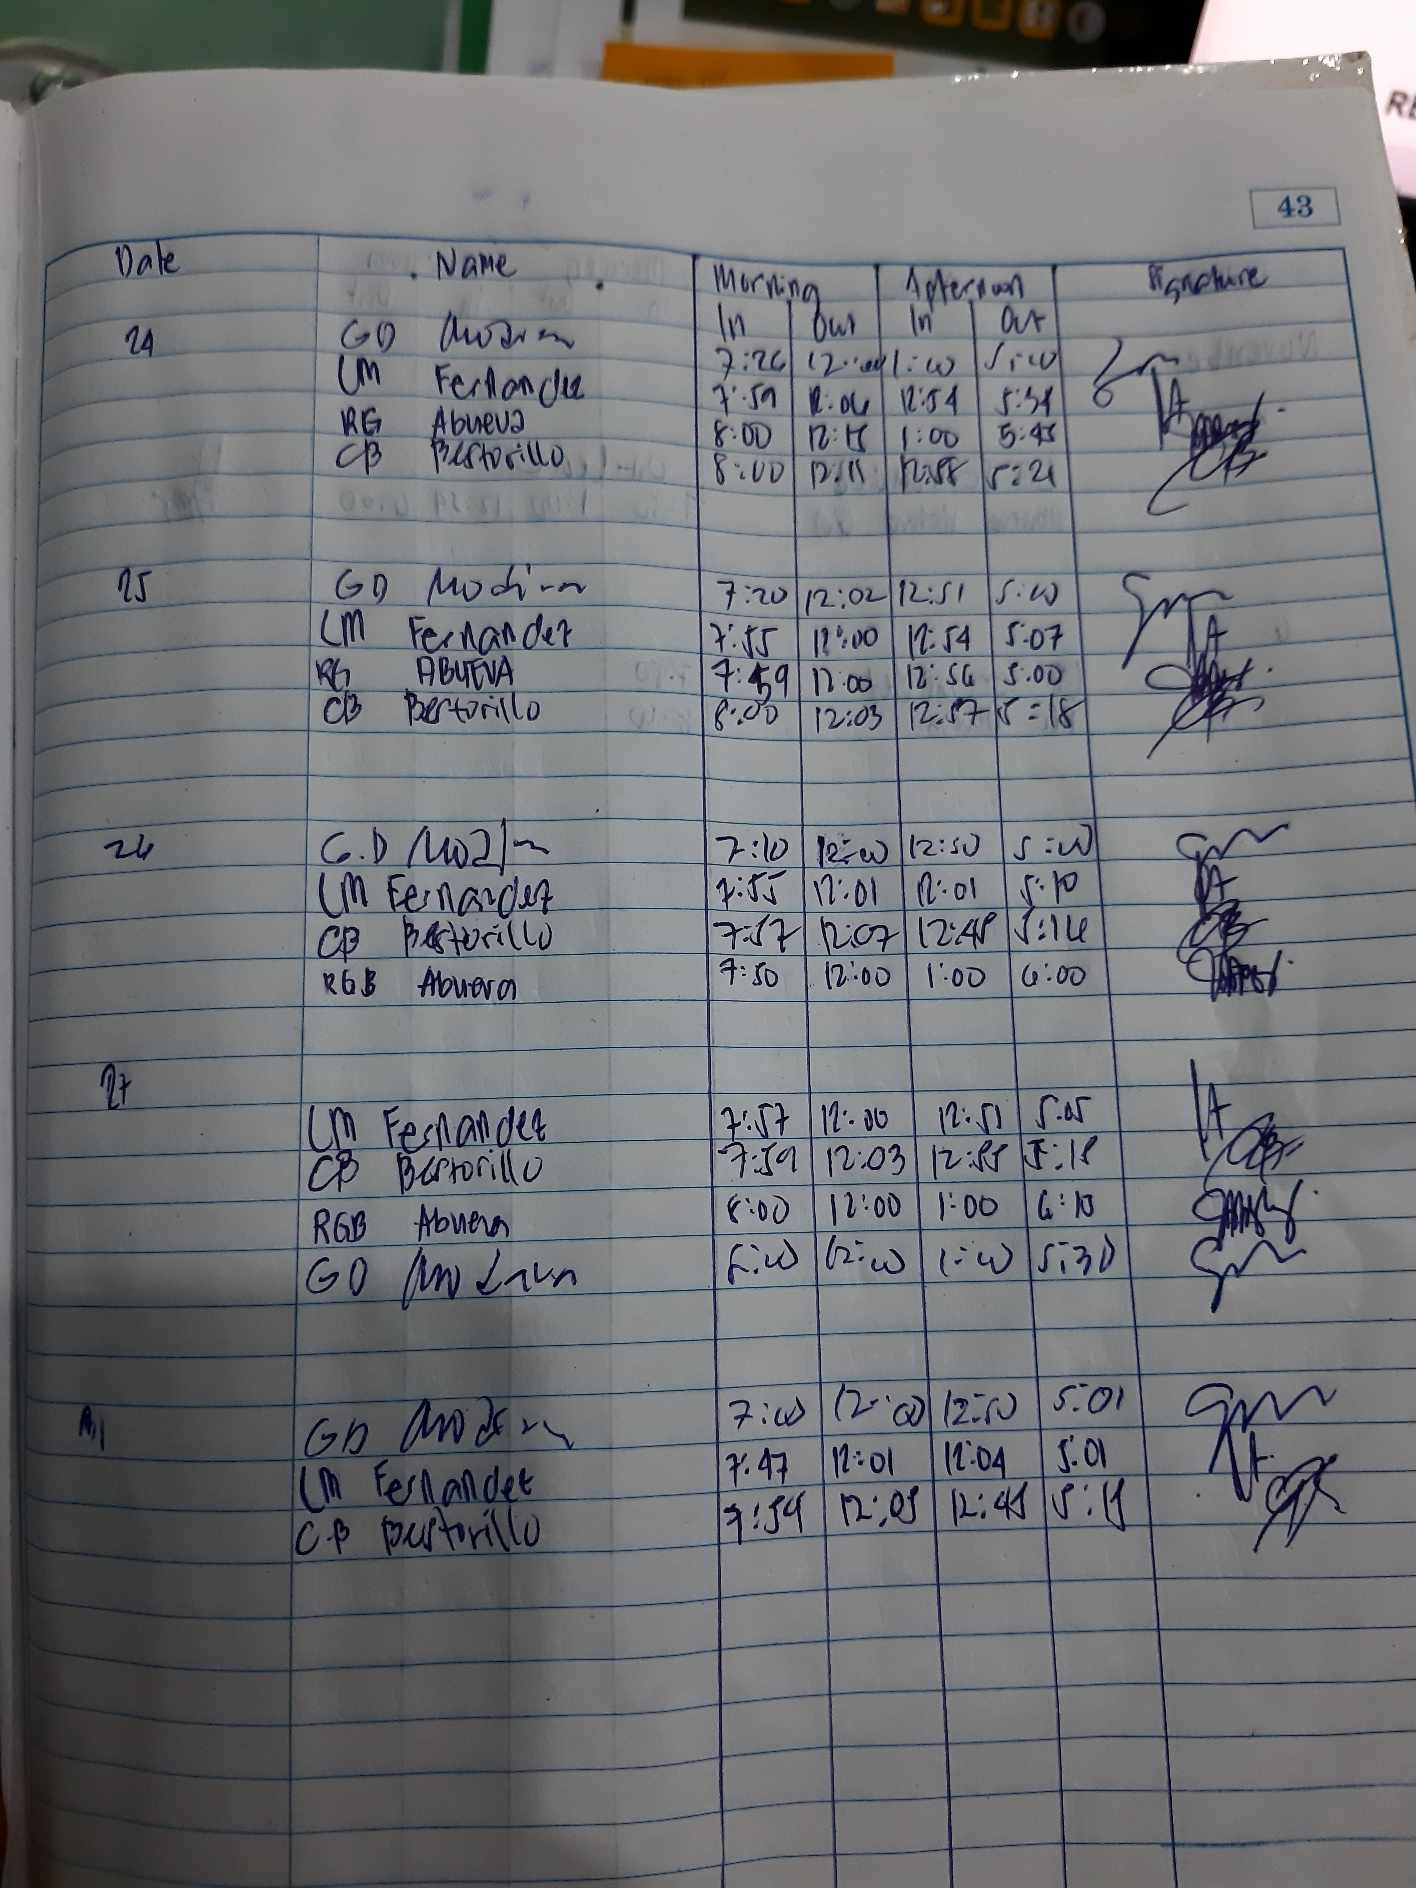 RE
43
Date Name Morning Afternoon Signature
In Out In Out
24 GD 7:26 12:00 1:00 5:00
LM Fernandez 7:59 12:06 12:54 5:34
RG Abueva 8:00 12:15 1:00 5:45
CB Bestorillo 8:00 12:11 12:58 5:21
25 GD Modina 7:20 12:02 12:51 5:00
LM Fernandez 7:55 12:00 12:54 5:07
RG ABUEVA 7:59 12:00 12:56 5:00
CB Bestorillo 8:00 12:03 12:57 5:18
26 G.D 7:10 12:00 12:50 5:00
LM Fernandez 7:55 12:01 12:01 5:10
CB Bestorillo 7:57 12:07 12:48 5:16
RGB Abueva 7:50 12:00 1:00 6:00
27
LM Fernandez 7:57 12:00 12:51 5:05
CB Bestorillo 7:59 12:03 12:55 5:15
RGB Abueva 8:00 12:00 1:00 6:10
GD 8:00 12:00 1:00 5:30
GD 7:00 12:00 12:50 5:01
LM Fernandez 7:47 12:01 12:04 5:01
CB Bestorillo 7:54 12:05 12:45 5:15